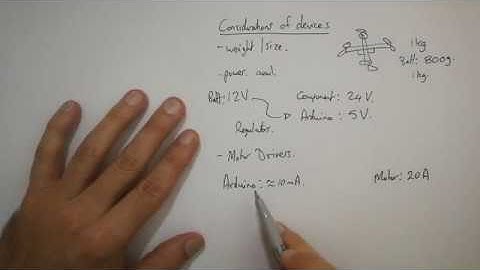 Considerations of devices
- weight/size.
1kg
Batt: 800g.
1kg
- power avail.
Batt: 12V
Component: 24V.
Arduino: 5V.
Regulator.
- Motor Drivers.
Arduino: ≈10mA.
Motor: 20A